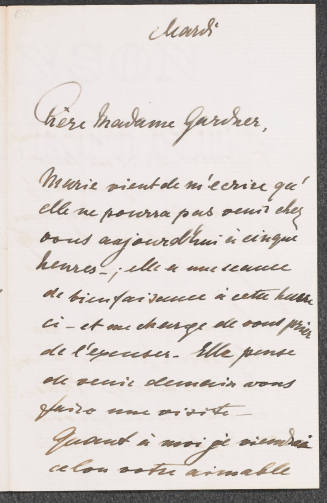 Mardi
Chère Madame Gardner,
Marie vient de m'écrire qu'
elle ne pourra pas venir chez
vous aujourd'hui à cinque
heures -; elle a une seance
de bienfaisance à cette heure
ci - et me charge de vous prier
de l'exenser - Elle pense
de venir demain vous
faire une visite -
Quant à moi je viendrai
celon votre aimable